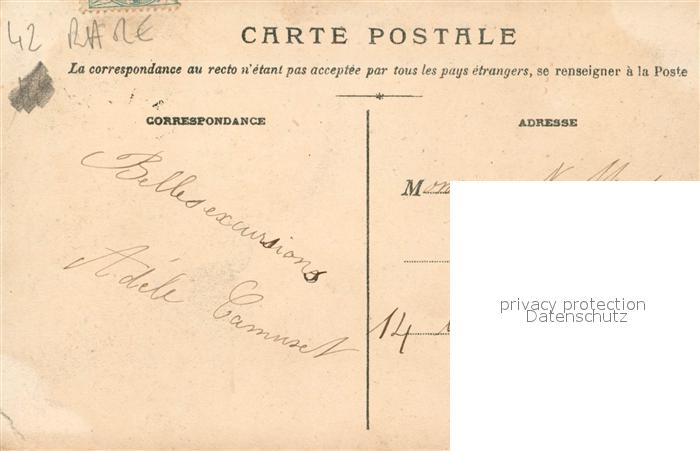 42 RARE
CARTE POSTALE
La correspondance au recto n'étant pas acceptée par tous les pays étrangers, se renseigner à la Poste
CORRESPONDANCE
ADRESSE
Belles excursions
Adéle Camuset
M
14
privacy protection
Datenschutz